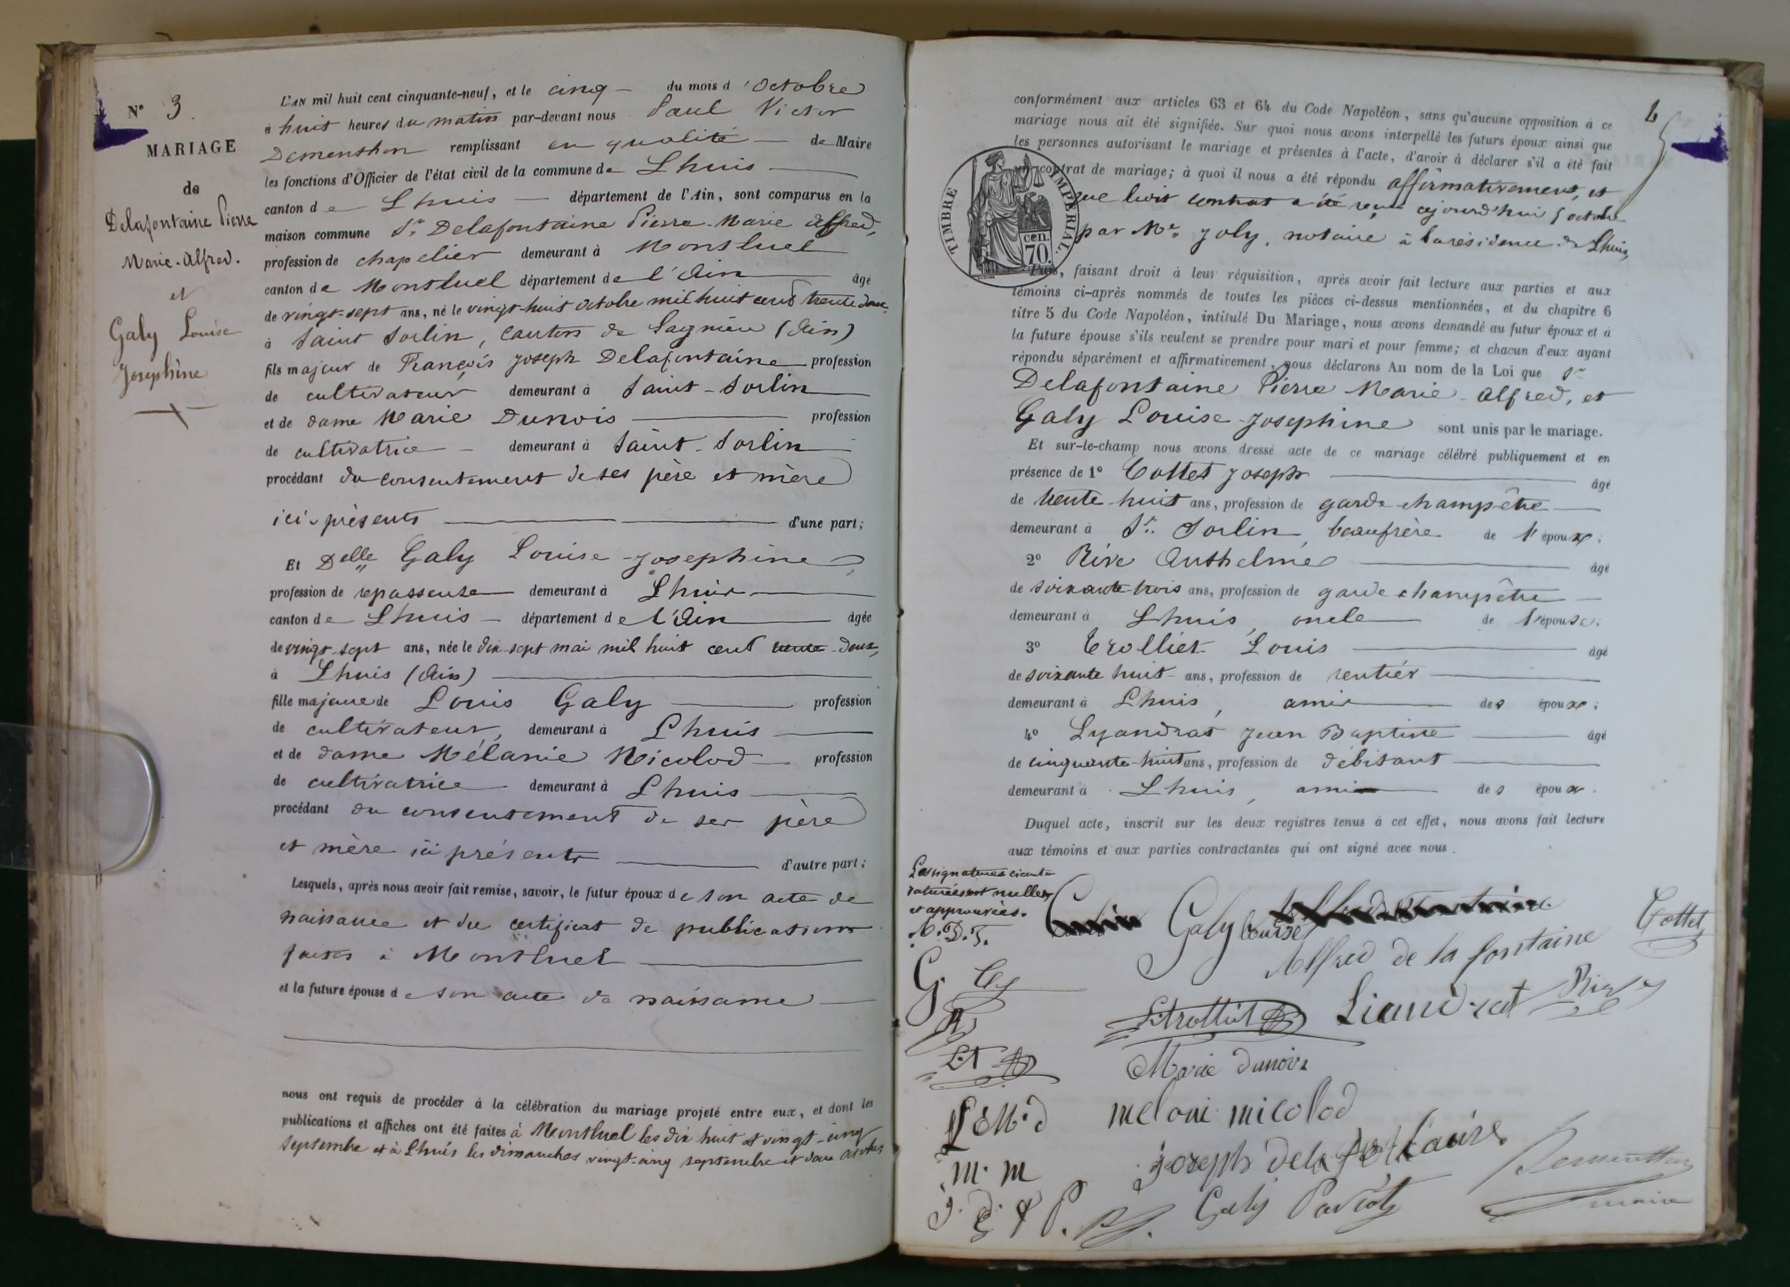 N° 3.
MARIAGE
de
Delafontaine Pierre
Marie-Alfred.
et
Galy Louise
Josephine
L'AN mil huit cent cinquante-neuf, et le cinq du mois d'octobre
à huit heures du matin par-devant nous Paul Victor
Dementhon remplissant en qualité de Maire
les fonctions d'Officier de l'état civil de la commune de Lhuis
canton de Lhuis département de l'Ain, sont comparus en la
maison commune Sr Delafontaine Pierre-Marie Alfred,
profession de chapelier demeurant à Montluel
canton de Montluel département de l'Ain âgé
de vingt-sept ans, né le vingt-huit octobre mil huit cent trente deux,
à Saint Sorlin, canton de Lagnieu (Ain)
fils majeur de François Joseph Delafontaine profession
de cultivateur demeurant à Saint-Sorlin
et de dame Marie Dunois profession
de cultivatrice demeurant à Saint-Sorlin
procédant du consentement de ses père et mère
ici présents d'une part;
Et Delle Galy Louise-Josephine,
profession de repasseuse demeurant à Lhuis
canton de Lhuis département de l'Ain âgée
de vingt-sept ans, née le dix-sept mai mil huit cent trente-deux,
à Lhuis (Ain)
fille majeure de Louis Galy profession
de cultivateur, demeurant à Lhuis
et de dame Mélanie Nicolod profession
de cultivatrice demeurant à Lhuis
procédant du consentement de ses père
et mère ici présents d'autre part;
Lesquels, après nous avoir fait remise, savoir, le futur époux de son acte de
naissance et du certificat de publications
faites à Montluel
et la future épouse de son acte de naissance
nous ont requis de procéder à la célébration du mariage projeté entre eux, et dont les
publications et affiches ont été faites à Montluel les dix huit et vingt-cinq
septembre et à Lhuis les dimanches vingt-cinq septembre et deux octobre
conformément aux articles 63 et 64 du Code Napoléon, sans qu'aucune opposition à ce
mariage nous ait été signifiée. Sur quoi nous avons interpellé les futurs époux ainsi que
les personnes autorisant le mariage et présentes à l'acte, d'avoir à déclarer s'il a été fait
contrat de mariage; à quoi il nous a été répondu affirmativement, et
que ledit contrat a été reçu cejourd'hui 5 octobre
par Me Joly, notaire à la résidence de Lhuis
TIMBRE IMPÉRIAL.
cen.
70.
Puis, faisant droit à leur réquisition, après avoir fait lecture aux parties et aux
témoins ci-après nommés de toutes les pièces ci-dessus mentionnées, et du chapitre 6
titre 5 du Code Napoléon, intitulé Du Mariage, nous avons demandé au futur époux et à
la future épouse s'ils veulent se prendre pour mari et pour femme; et chacun d'eux ayant
répondu séparément et affirmativement, nous déclarons Au nom de la Loi que Sr
Delafontaine Pierre Marie-Alfred, et
Galy Louise-Josephine sont unis par le mariage.
Et sur-le-champ nous avons dressé acte de ce mariage célébré publiquement et en
présence de 1° Cottet Joseph âgé
de trente huit ans, profession de garde-champêtre
demeurant à St. Sorlin, beaufrère de l'époux;
2° Rive Anthelme âgé
de soixante-trois ans, profession de garde champêtre
demeurant à Lhuis, oncle de l'épouse;
3° Trolliet Louis âgé
de soixante huit ans, profession de rentier
demeurant à Lhuis, ami des époux;
4° Lyandrat Jean Baptiste âgé
de cinquante-huit ans, profession de débitant
demeurant à Lhuis, ami des époux.
Duquel acte, inscrit sur les deux registres tenus à cet effet, nous avons fait lecture
aux témoins et aux parties contractantes qui ont signé avec nous.
Les signatures ci contre
raturées sont nulles
et approuvées.
A. D. F.
Galy Louise
Cottet
Alfred de la fontaine
G
Liandrat
Rive
L.T
Marie dunois
meloni micolod
m. m
Joseph delafontaine
Galy
Dementhon
maire